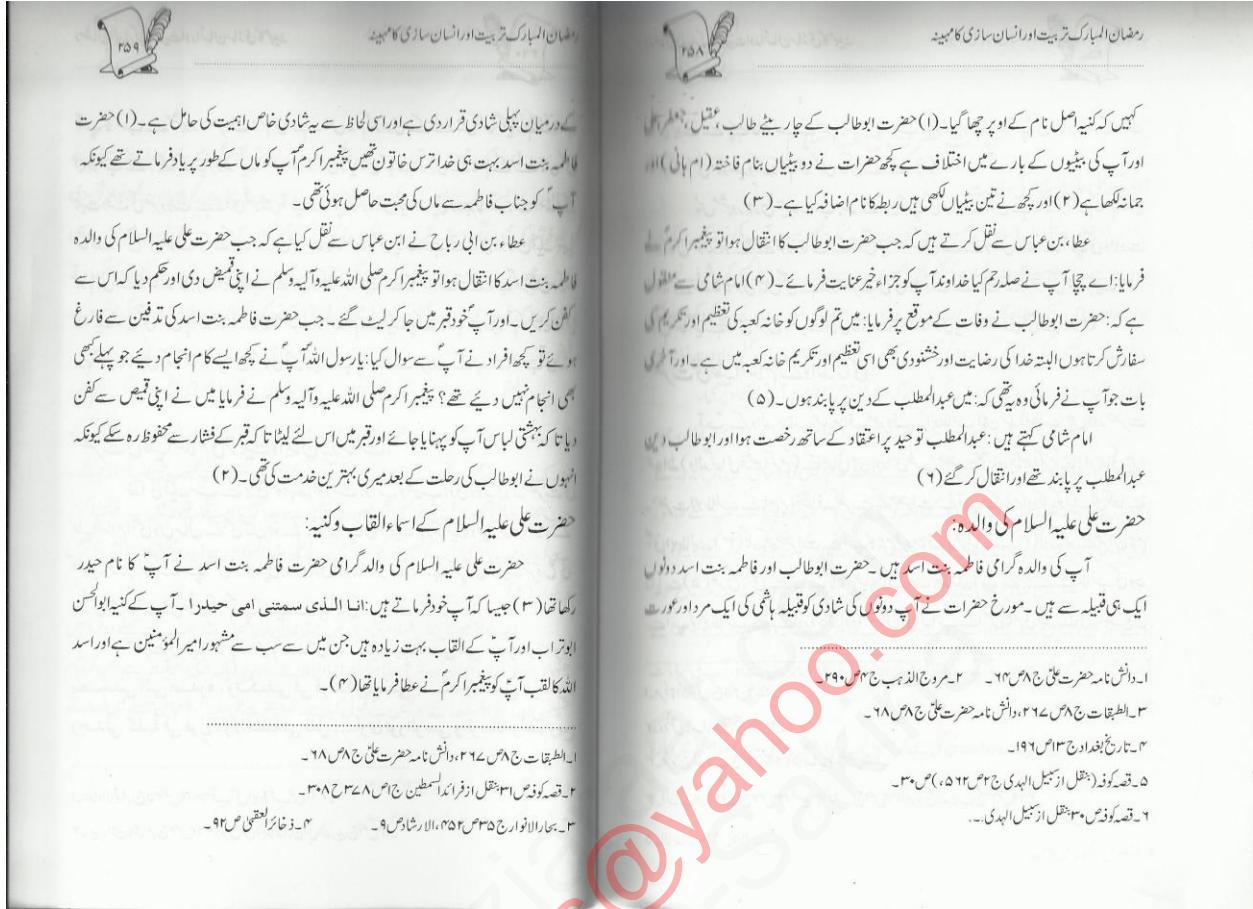 رمضان المبارک تربیت اور انسان سازی کا مہینہ
۲۵۸
کہیں کہ کنیہ اصل نام کے اوپر چھا گیا۔(۱) حضرت ابوطالب کے چار بیٹے طالب، عقیل، جعفر علی
اور آپ کی بیٹیوں کے بارے میں اختلاف ہے کچھ حضرات نے دو بیٹیاں بنام فاختہ (ام ہانی) اور
جمانہ لکھا ہے (۲) اور کچھ نے تین بیٹیاں لکھی ہیں ربطہ کا نام اضافہ کیا ہے۔(۳)
عطا، بن عباس سے نقل کرتے ہیں کہ جب حضرت ابوطالب کا انتقال ہوا تو پیغمبر اکرمؐ نے
فرمایا: اے چچا آپ نے صلہ رحم کیا خداوند آپ کو جزاء خیر عنایت فرمائے۔(۴) امام شامی سے منقول
ہے کہ: حضرت ابوطالب نے وفات کے موقع پر فرمایا: میں تم لوگوں کو خانہ کعبہ کی تعظیم اور تکریم کی
سفارش کرتا ہوں البتہ خدا کی رضایت اور خشنودی بھی اسی تعظیم اور تکریم خانہ کعبہ میں ہے۔ اور آخری
بات جو آپ نے فرمائی وہ یہ تھی کہ: میں عبدالمطلب کے دین پر پابند ہوں۔(۵)
امام شامی کہتے ہیں: عبدالمطلب توحید پر اعتقاد کے ساتھ رخصت ہوا اور ابوطالب دین
عبدالمطلب پر پابند تھے اور انتقال کر گئے (۶)
حضرت علی علیہ السلام کی والدہ:
آپ کی والدہ گرامی فاطمہ بنت اسد ہیں۔ حضرت ابوطالب اور فاطمہ بنت اسد دونوں
ایک ہی قبیلہ سے ہیں۔ مورخ حضرات نے آپ دونوں کی شادی کو قبیلہ ہاشمی کی ایک مرد اور عورت
۱۔ دانش نامہ حضرت علیؑ ج ۸ ص ۶۴۔ ۲۔ مروج الذہب ج ۴ ص ۲۹۰۔
۳۔ الطبقات ج ۸ ص ۲۶۷، دانش نامہ حضرت علیؑ ج ۸ ص ۶۸۔
۴۔ تاریخ بغداد ج ۱۳ ص ۱۹۶۔
۵۔ قصہ کوفہ (بنقل از سبیل الہدی ج ۲ ص ۵۶۲،) ص ۳۰۔
۶۔ قصہ کوفہ ص ۳۰ بنقل از سبیل الہدی۔۔۔
رمضان المبارک تربیت اور انسان سازی کا مہینہ
۲۵۹
کے درمیان پہلی شادی قرار دی ہے اور اسی لحاظ سے یہ شادی خاص اہمیت کی حامل ہے۔(۱) حضرت
فاطمہ بنت اسد بہت ہی خدا ترس خاتون تھیں پیغمبر اکرمؐ آپ کو ماں کے طور پر یاد فرماتے تھے کیونکہ
آپؐ کو جناب فاطمہ سے ماں کی محبت حاصل ہوئی تھی۔
عطاء بن ابی رباح نے ابن عباس سے نقل کیا ہے کہ جب حضرت علی علیہ السلام کی والدہ
فاطمہ بنت اسد کا انتقال ہوا تو پیغمبر اکرم صلی اللہ علیہ وآلہ وسلم نے اپنی قمیض دی اور حکم دیا کہ اس سے
کفن کریں۔ اور آپؐ خود قبر میں جا کر لیٹ گئے۔ جب حضرت فاطمہ بنت اسد کی تدفین سے فارغ
ہوئے تو کچھ افراد نے آپؐ سے سوال کیا: یا رسول اللہ آپؐ نے کچھ ایسے کام انجام دیئے جو پہلے کبھی
بھی انجام نہیں دیئے تھے؟ پیغمبر اکرم صلی اللہ علیہ وآلہ وسلم نے فرمایا میں نے اپنی قمیص سے کفن
دیا تا کہ بہشتی لباس آپ کو پہنایا جائے اور قبر میں اس لئے لیٹا تا کہ قبر کے فشار سے محفوظ رہ سکے کیونکہ
انہوں نے ابوطالب کی رحلت کے بعد میری بہترین خدمت کی تھی۔(۲)
حضرت علی علیہ السلام کے اسماء القاب وکنیہ:
حضرت علی علیہ السلام کی والد گرامی حضرت فاطمہ بنت اسد نے آپؑ کا نام حیدر
رکھا تھا (۳) جیسا کہ آپ خود فرماتے ہیں: انا الذی سمتنی امی حیدرا۔ آپ کے کنیہ ابوالحسن
ابوتراب اور آپؑ کے القاب بہت زیادہ ہیں جن میں سے سب سے مشہور امیر المؤمنین ہے اور اسد
اللہ کا لقب آپؑ کو پیغمبر اکرمؐ نے عطا فرمایا تھا (۴)۔
۱۔ الطبقات ج ۸ ص ۲۶۷، دانش نامہ حضرت علیؑ ج ۸ ص ۶۸۔
۲۔ قصہ کوفہ ص ۳۱ بنقل از فرائد السمطین ج ۱ ص ۳۷۸ ح ۳۰۸۔
۳۔ بحار الانوار ج ۳۵ ص ۴۵۲، الارشاد ص ۹۔ ۴۔ ذخائر العقبیٰ ص ۹۲۔
s@yahoo.com